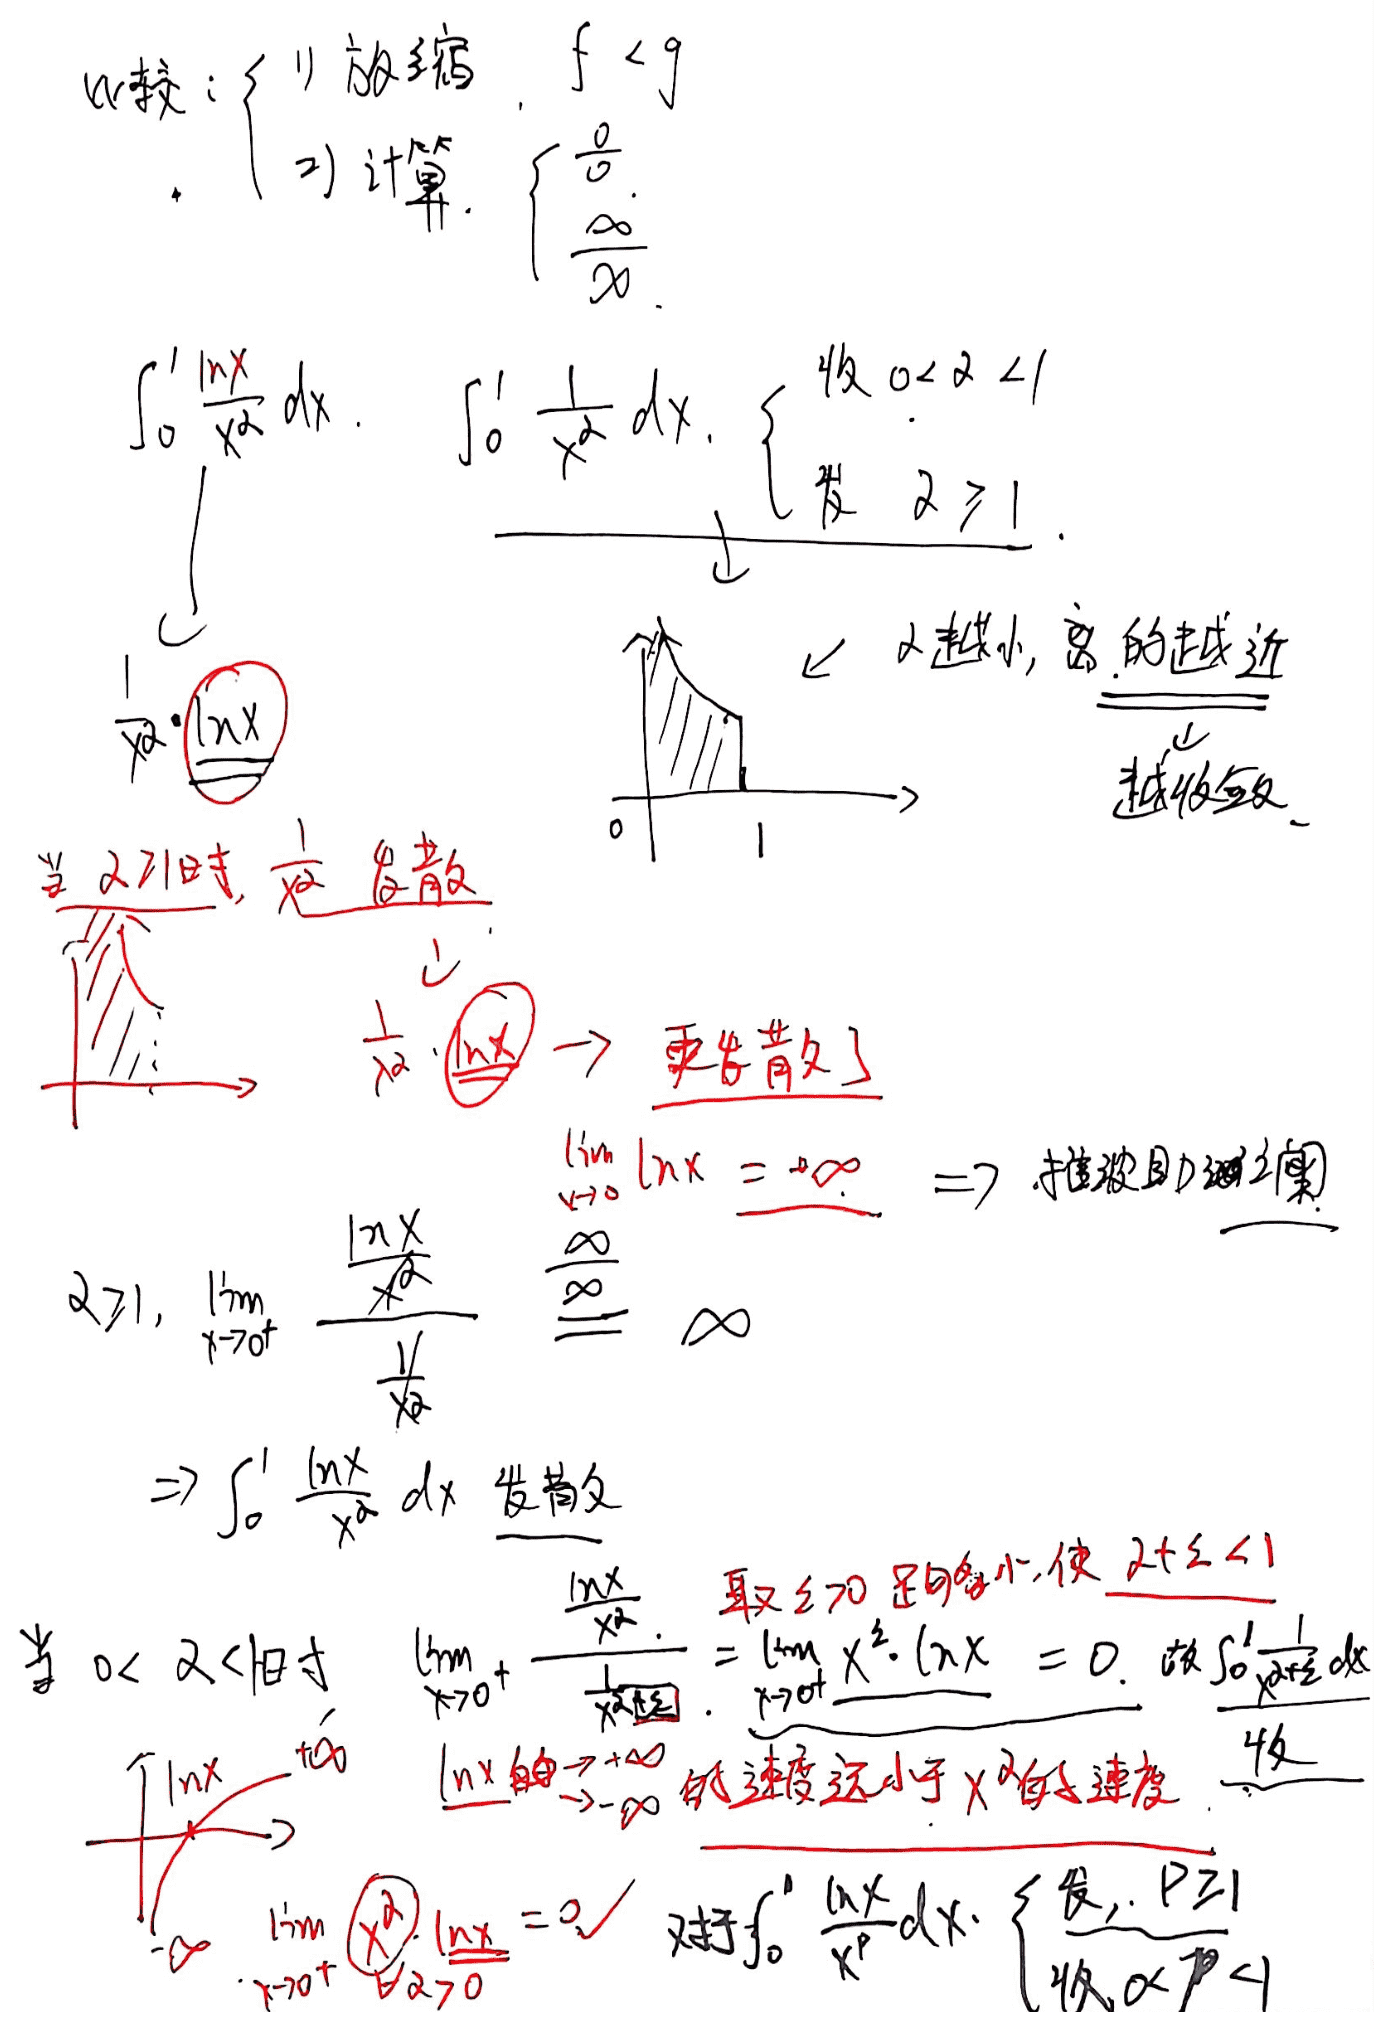 比较: { 1) 放缩. f < g
2) 计算. { 0/0. ∞/∞.
∫₀¹ lnx/x^α dx. ∫₀¹ 1/x^α dx. { 收 0<α<1
发 α≥1.
1/x^α · lnx
α越小, 离 的越近
越收敛.
0 1
当 α≥1时, 1/x^α 发散
1/x^α · lnx → 更发散了
lim x→0 lnx = +∞ ⇒ 推波助澜
α≥1, lim x→0⁺ (lnx/x^α)/(1/x^α) =(∞/∞)= ∞
⇒ ∫₀¹ lnx/x^α dx 发散
取 ε>0 足够小, 使 α+ε<1
当 0<α<1时 lim x→0⁺ (lnx/x^α)/(1/x^(α+ε)). = lim x→0⁺ x^ε·lnx = 0. 故 ∫₀¹ 1/x^(α+ε) dx
收
lnx +∞ -∞
lnx →+∞ →-∞ 的速度远小于 x^α的速度.
lim x→0⁺ x^α·lnx = 0 ✓
∀α>0
对于∫₀¹ lnx/x^p dx. { 发, p≥1
收, 0<p<1